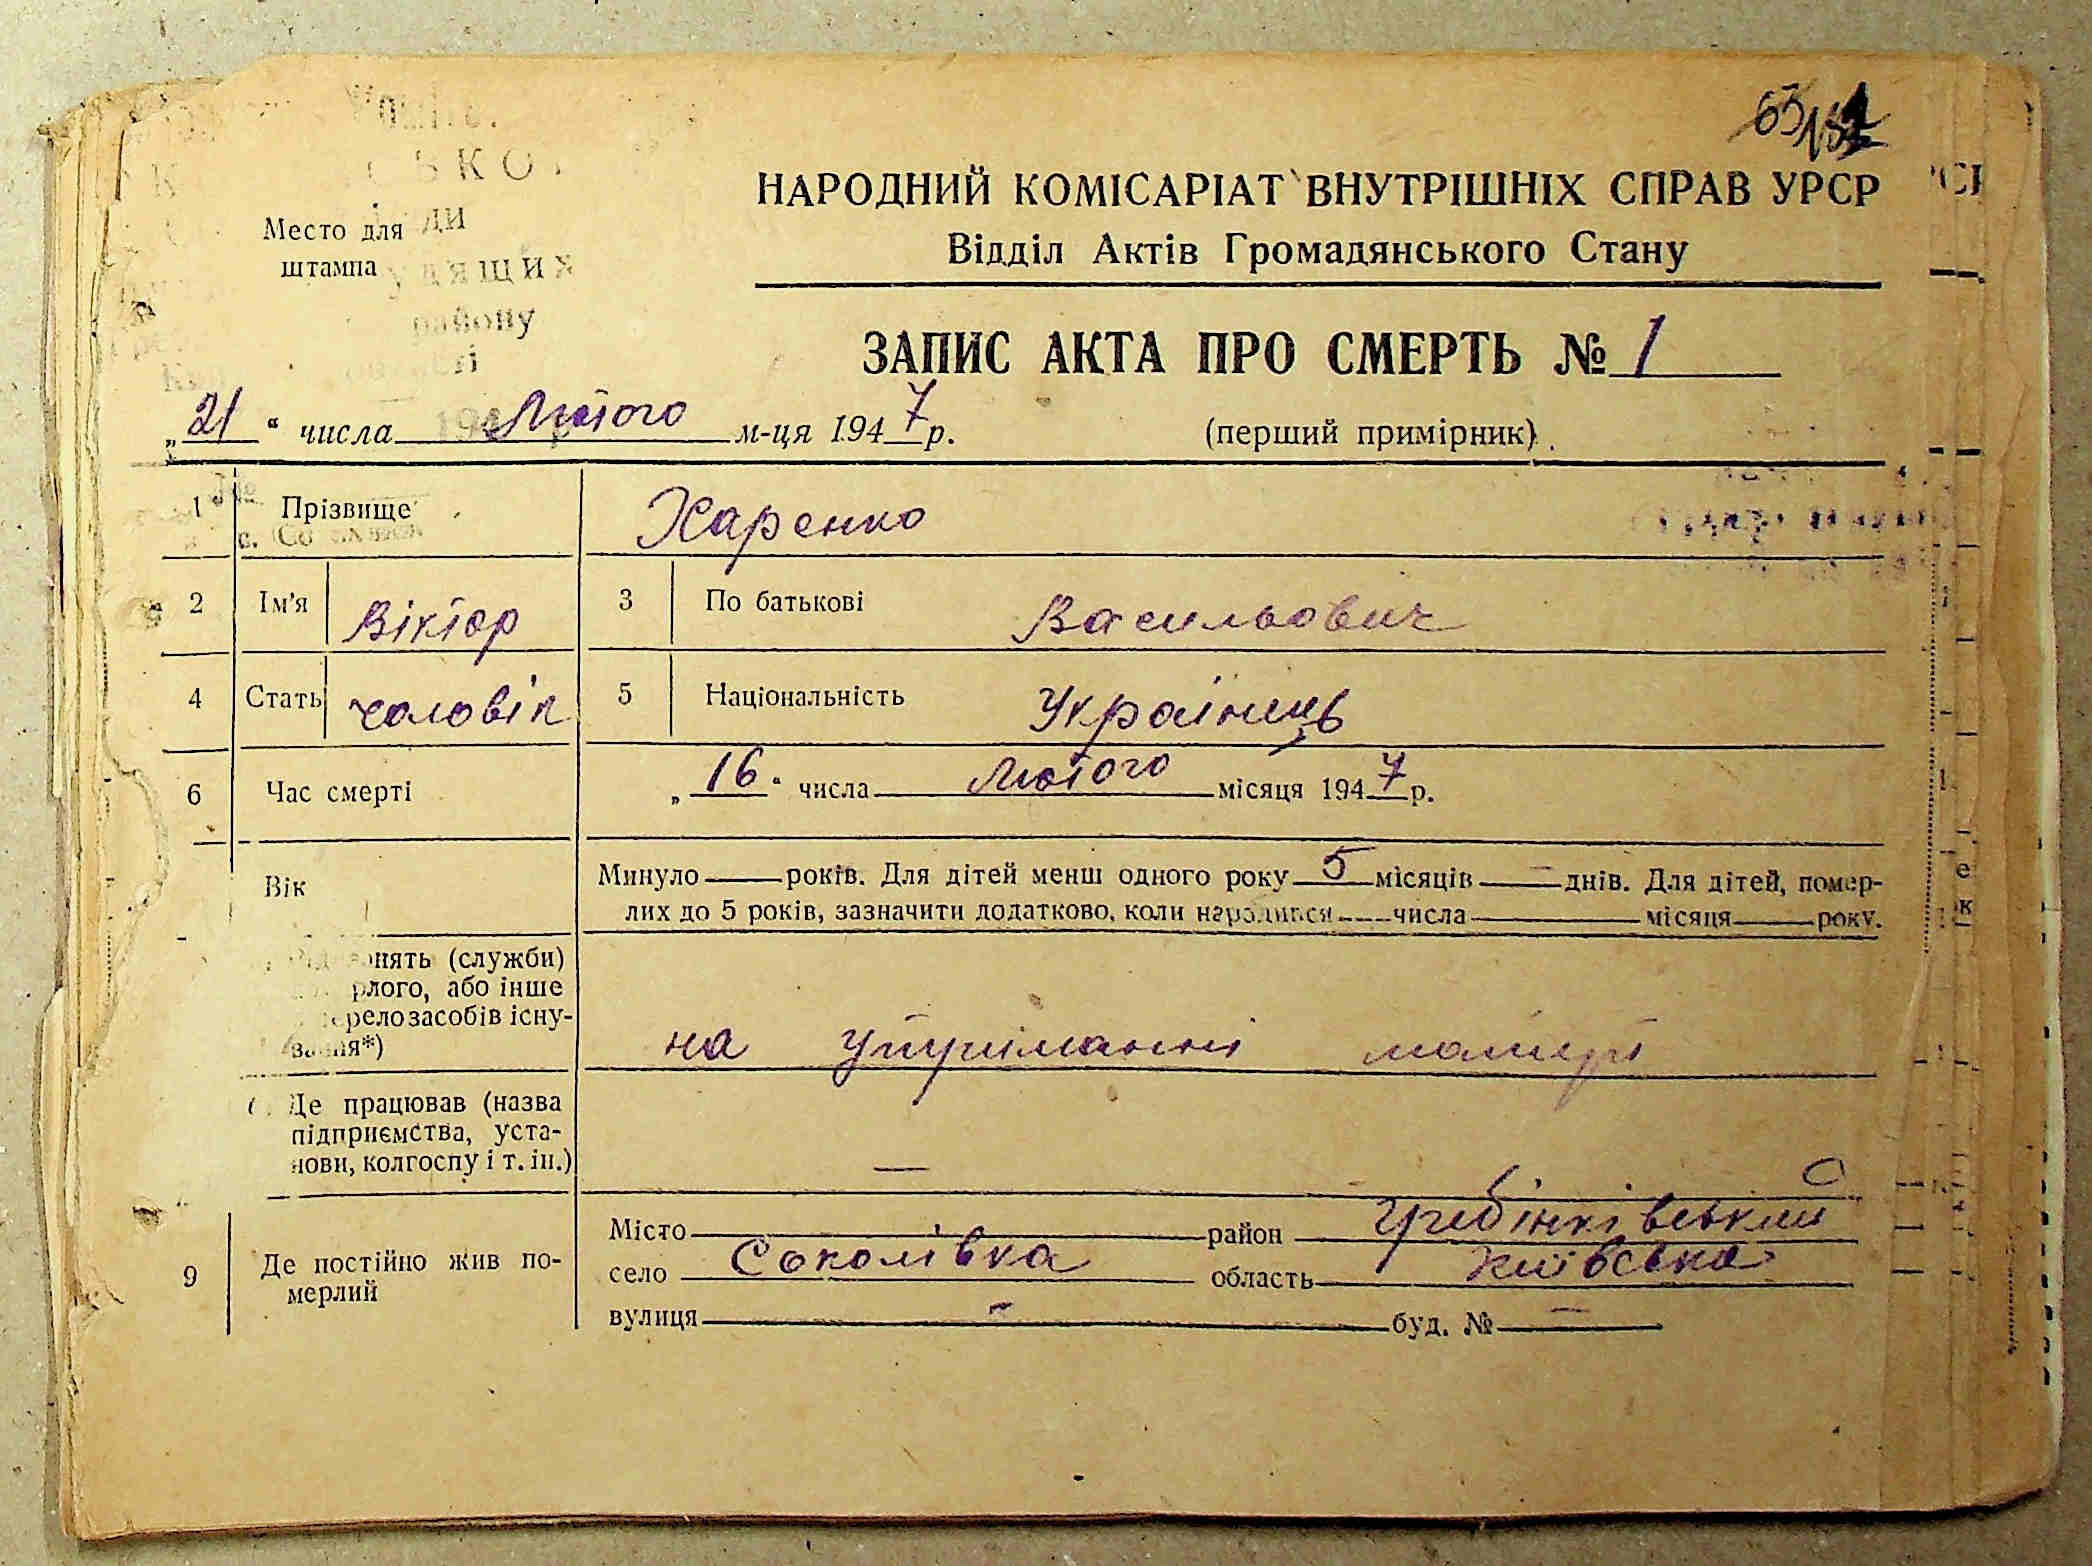 Место для
штампа
НАРОДНИЙ КОМІСАРІАТ ВНУТРІШНІХ СПРАВ УРСР
Відділ Актів Громадянського Стану
району
ЗАПИС АКТА ПРО СМЕРТЬ № 1
„21“ числа Лютого м-ця 1947 р. (перший примірник)
1 Прізвище Харенко
2 Ім'я Віктор 3 По батькові Васильович
4 Стать чоловік 5 Національність Українець
6 Час смерті „16“ числа Лютого місяця 1947 р.
Вік Минуло — років. Для дітей менш одного року 5 місяців — днів. Для дітей, помер-
лих до 5 років, зазначити додатково, коли народився — числа — місяця — року.
(служби)
або інше
засобів існу-
на утриманні матері
Де працював (назва
підприємства, уста-
нови, колгоспу і т. ін.) —
9 Де постійно жив по-
мерлий
Місто — район Гребінківський
село Соколівка область Київська
вулиця — буд. № —